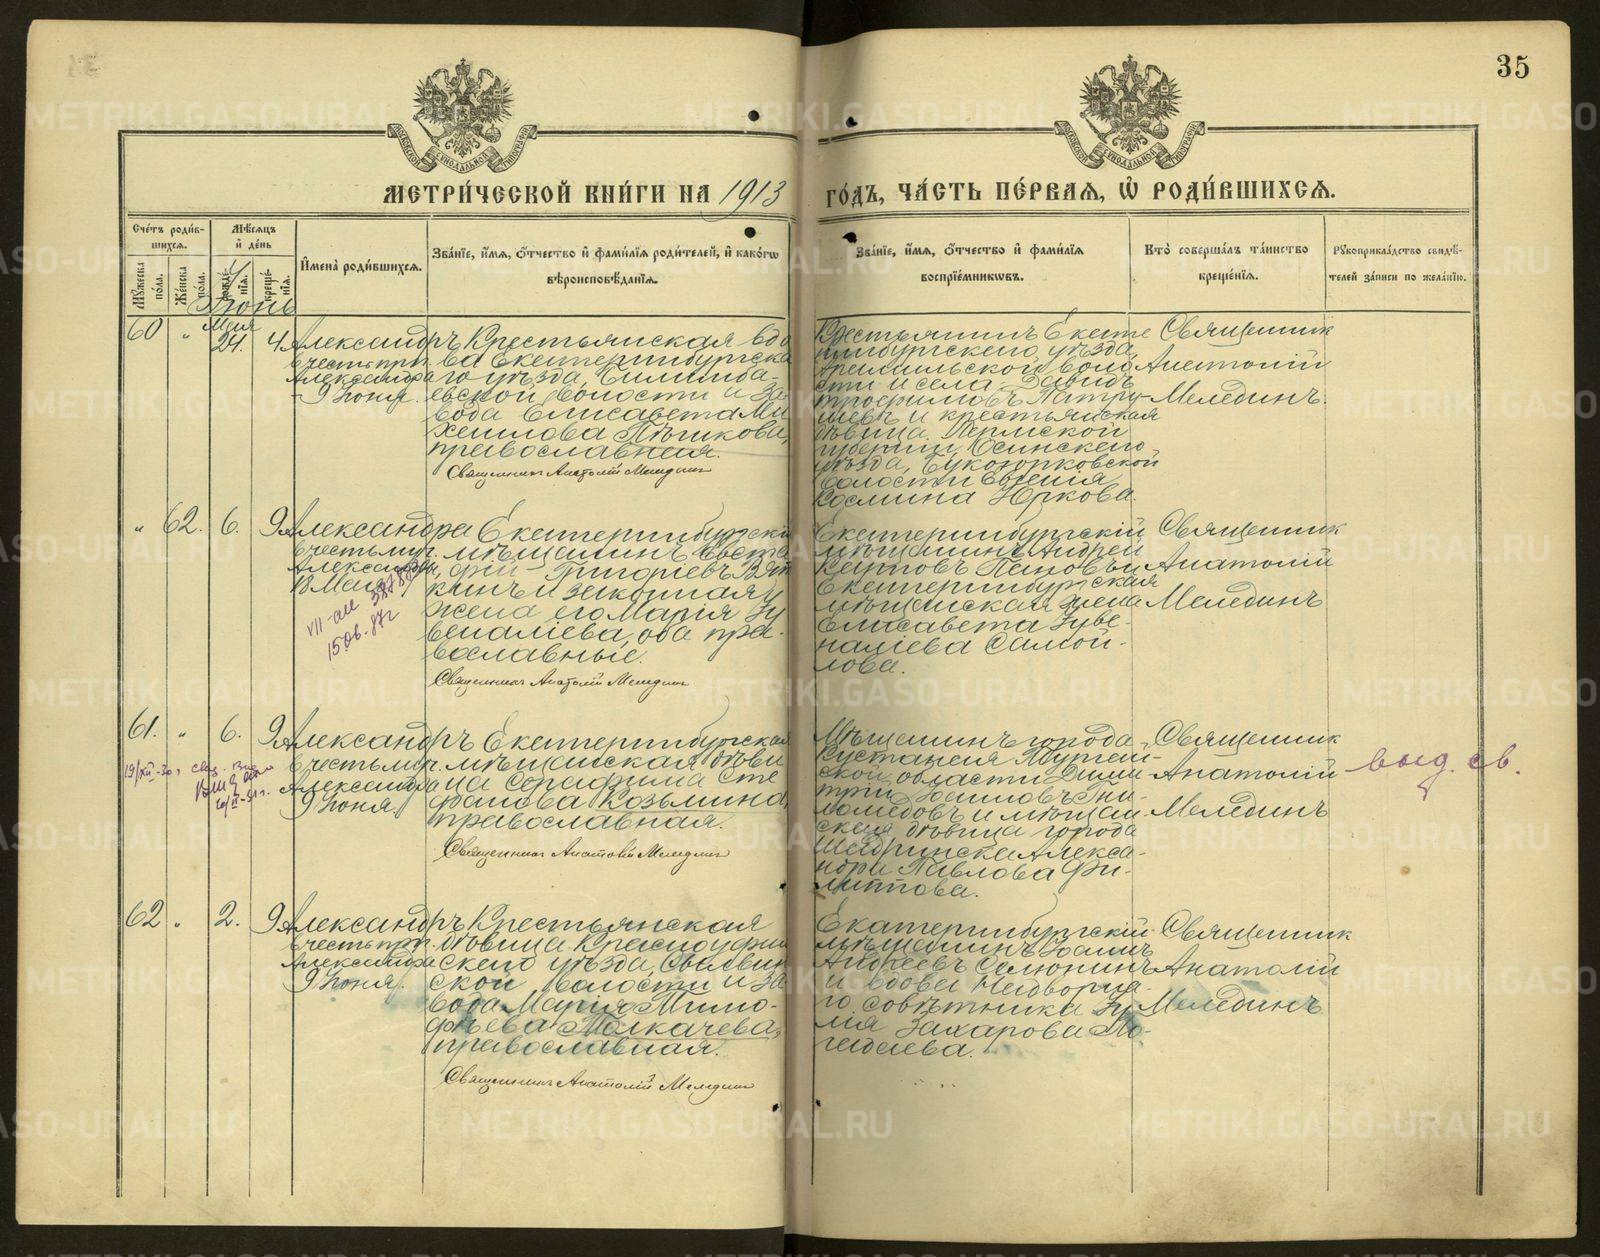 35
МЕТРИ́ЧЕСКОЙ КНИ́ГИ НА 1913 ГО́ДЪ, ЧА́СТЬ ПЕ́РВАЯ, Ѿ РОДИ́ВШИХСѦ.
Сче́тъ роди́в-
шихсѧ.
Мѣ́сѧцъ
и҆ де́нь
Мꙋ́жеска по́ла.
Же́нска по́ла.
рожде́-
нїѧ.
креще́-
нїѧ.
И҆мена̀ роди́вшихсѧ.
Зва́нїе, и҆́мѧ, ѻ҆́тчество и҆ фами́лїѧ роди́телей, и҆ како́гѡ
вѣроисповѣ́данїѧ.
Зва́нїе, и҆́мѧ, ѻ҆́тчество и҆ фами́лїѧ
воспрїе́мникѡвъ.
Кто̀ соверша́лъ та́инство
креще́нїѧ.
Рꙋкоприкла́дство свидѣ́-
телей за́писи по жела́нїю.
Іюнь
60 " Мая 24. 4
Александръ
въ честь прп.
Александра
9 Іюня.
Крестьянская вдо
ва Екатеринбургска
го уѣзда, Билимба-
евской волости и За
вода Елисавета Ми
хаилова Пѣгикова,
православная.
Священникъ Анатолій Мелединъ
Крестьянинъ Екате
ринбургскаго уѣзда,
Арамильской воло
сти и села Давидъ
Трофимовъ Патру-
шевъ и крестьянская
дѣвица Пермской
губерніи, Осинскаго
уѣзда, Букоюрковской
волости Евгенія
Космина Юркова.
Священник
Анатолій
Мелединъ.
" 62. 6. 9
Александра
въ честь муч.
Александры,
Мая
VII-аи
15 08. 87г
Екатеринбургскій
мѣщанинъ Евста
фій Григоріевъ Вят
кинъ и законная
жена его Марія Іу
веналіева, оба пра-
вославные.
Священникъ Анатолій Мелединъ
Екатеринбургскій
мѣщанинъ Андрей
Карповъ Пановъ и
Екатеринбургская
мѣщанская жена
Елисавета Іуве-
наліева Самой-
лова.
Священник
Анатолій
Мелединъ
61. " 6. 9
Александръ
въ честь мар.
Александра
9 Іюня.
Екатеринбургская
мѣщанская дѣви
ца Серафима Сте
фанова Козьмина,
православная.
Священникъ Анатолій Мелединъ
Мѣщанинъ города
Кустаная Тургай-
ской области Дими
трій
и мѣщан
ская дѣвица города
Шадринска Алекса-
ндра Павлова Фи-
липпова.
Священник
Анатолій
Мелединъ
выд. св.
62 " 2. 9
Александръ
въ честь прп.
Александра
9 Іюня.
Крестьянская
дѣвица Красноуфим
скаго уѣзда,
ской волости и За
вода Марія Тимо-
фѣева Толкачева,
православная.
Священникъ Анатолій Мелединъ
Екатеринбургскій
мѣщанинъ Іоаннъ
Андреевъ Селюнинъ
и вдова Надворна-
го совѣтника Іу
лія Захарова По-
гадаева.
Священник
Анатолій
Мелединъ